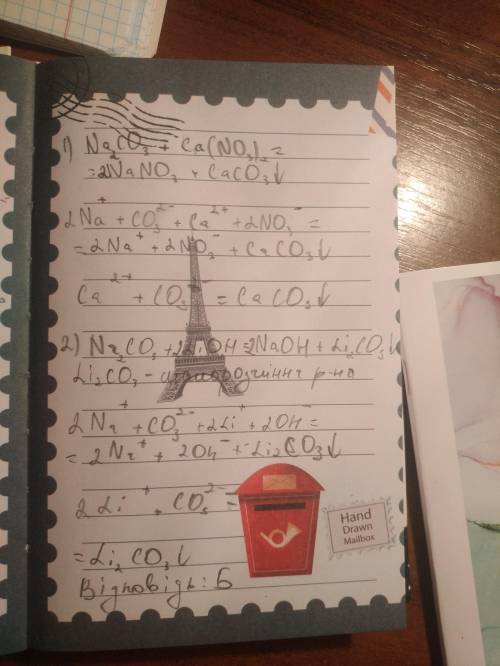 1) Na₂CO₃ + Ca(NO₃)₂ =
= 2NaNO₃ + CaCO₃↓
2Na⁺ + CO₃²⁻ + Ca²⁺ + 2NO₃⁻ =
= 2Na⁺ + 2NO₃⁻ + CaCO₃↓
Ca²⁺ + CO₃²⁻ = CaCO₃↓
2) Na₂CO₃ + 2LiOH = 2NaOH + Li₂CO₃↓
Li₂CO₃ - р-на
2Na⁺ + CO₃²⁻ + 2Li⁺ + 2OH⁻ =
= 2Na⁺ + 2OH⁻ + Li₂CO₃↓
2Li⁺ + CO₃²⁻ =
= Li₂CO₃↓
Відповідь: Б
Hand
Drawn
Mailbox